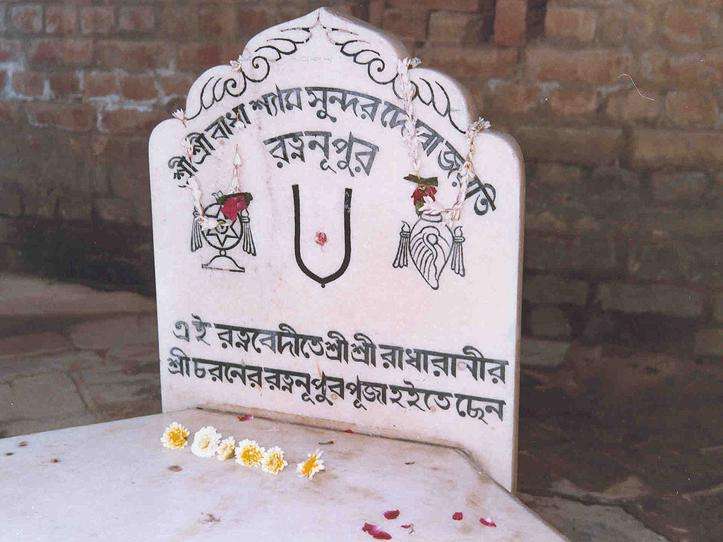 শ্রী শ্রী রাধা শ্যাম সুন্দর দেবা জয়তি
রত্ননূপুর
এই রত্নবেদীতে শ্রী শ্রী রাধারানীর
শ্রী চরনের রত্ননূপুর পূজা হইতেছেন